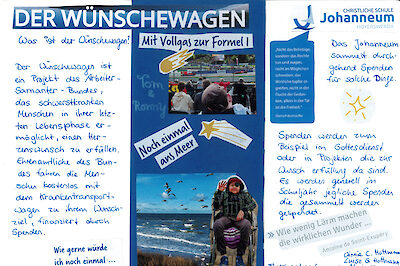 DER WÜNSCHEWAGEN
Was ist der Wünschewagen?
Der Wünschewagen ist
ein Projekt des Arbeiter-
Samariter-Bundes,
das schwerstkranken
Menschen in ihrer letz-
ten Lebensphase er-
möglicht, einen Her-
zenswunsch zu erfüllen.
Ehrenamtliche des Bun-
des fahren die Men-
schen kostenlos mit
dem Krankentransport-
wagen zu ihrem Wunsch-
ziel, finanziert durch
Spenden.
Wie gerne würde
ich noch einmal ...
Mit Vollgas zur Formel 1
Tom &
Romy
Noch einmal
ans Meer
CHRISTLICHE SCHULE
Johanneum
HOYERSWERDA
Das Johanneum
sammelt durch-
gehend Spenden
für solche Dinge.
Spenden werden zum
Beispiel im Gottesdienst
oder in Projekten die zur
Wunsch erfüllung da sind.
Es werden generell im
Schuljahr jegliche Spenden
die gesammelt werden
gespendet.
» Wie wenig Lärm machen
die wirklichen Wunder «
Antoine de Saint-Exupéry